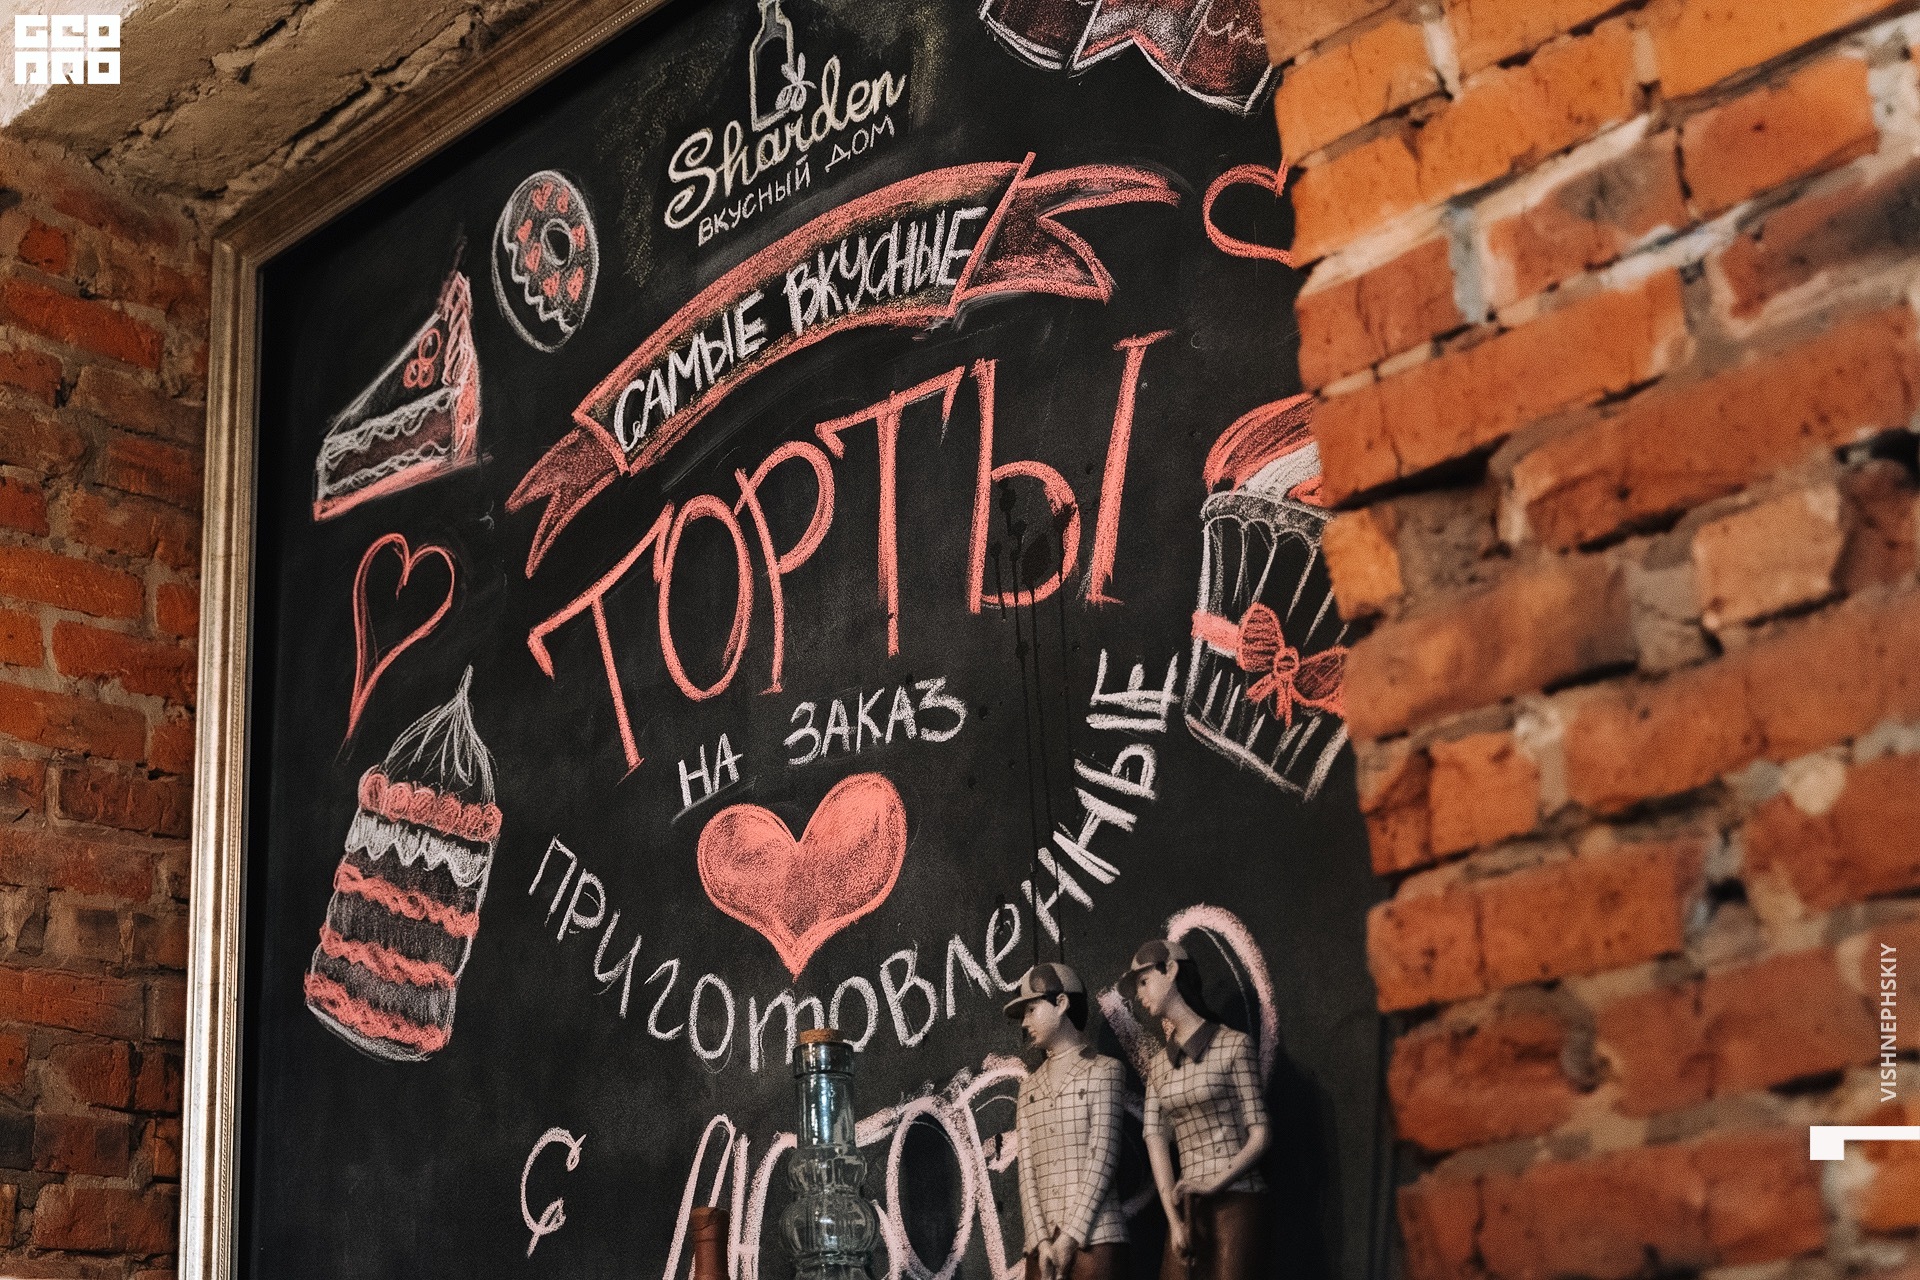 GEO
ARO
Sharden
ВКУСНЫЙ ДОМ
САМЫЕ ВКУСНЫЕ
ТОРТЫ
НА ЗАКАЗ
приготовленные
С
VISHNEPHSKIY